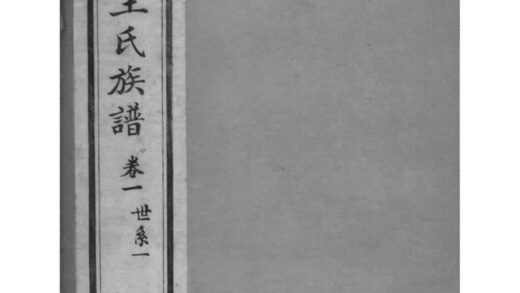 王氏族譜
卷一
世系一